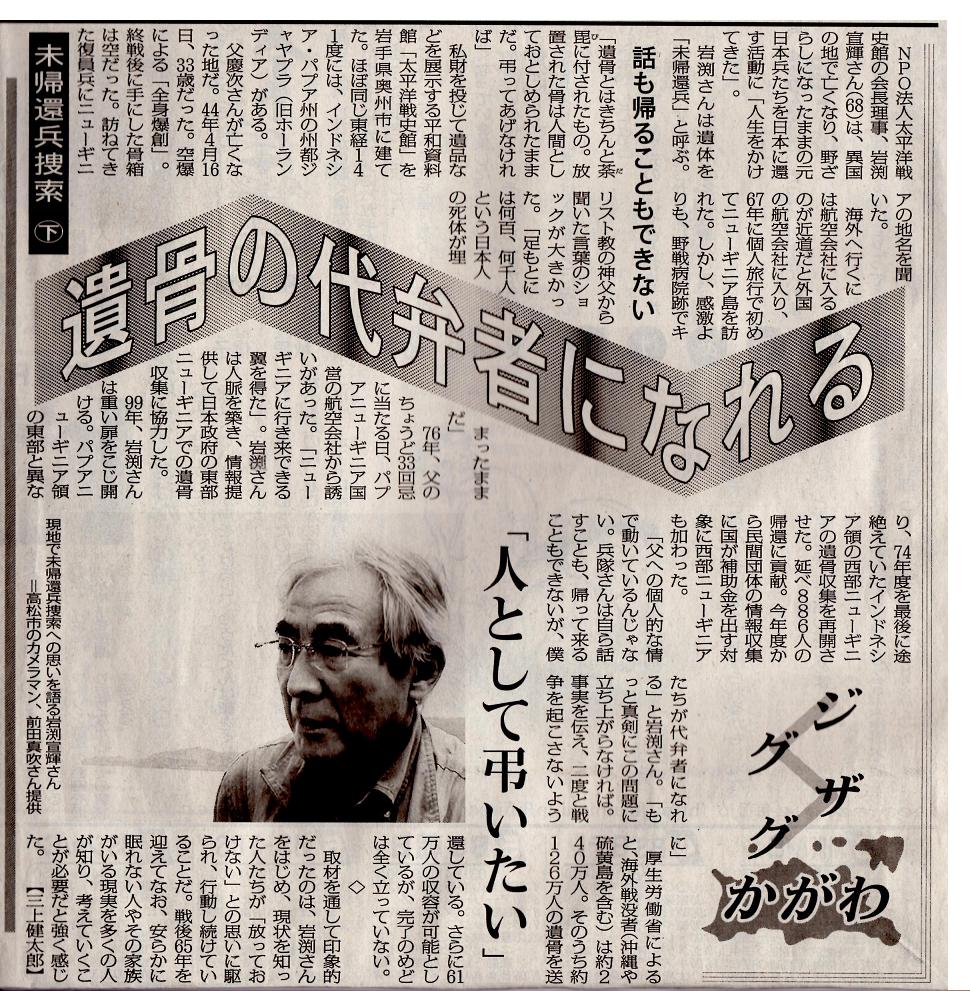 未帰還兵捜索 下
遺骨の代弁者になれる
「人として弔いたい」
話も帰ることもできない
ジグザグ
かがわ
NPO法人太平洋戦
史館の会長理事、岩渕
宣輝さん(68)は、異国
の地で亡くなり、野ざ
らしになったままの元
日本兵たちを日本に還
す活動に「人生をかけ
てきた」。
岩渕さんは遺体を
「未帰還兵」と呼ぶ。
「遺骨とはきちんと荼
毘に付されたもの。放
置された骨は人間とし
ておとしめられたまま
だ。弔ってあげなけれ
ば」
私財を投じて遺品な
どを展示する平和資料
館「太平洋戦史館」を
岩手県奥州市に建て
た。ほぼ同じ東経14
1度には、インドネシ
ア・パプア州の州都ジ
ャヤプラ(旧ホーラン
ディア)がある。
父慶次さんが亡くな
った地だ。44年4月16
日、33歳だった。空爆
による「全身爆創」。
終戦後に手にした骨箱
は空だった。訪ねてき
た復員兵にニューギニ
アの地名を聞
いた。
海外へ行くに
は航空会社に入る
のが近道だと外国
の航空会社に入り、
67年に個人旅行で初め
てニューギニア島を訪
れた。しかし、感激よ
りも、野戦病院跡でキ
リスト教の神父から
聞いた言葉のショ
ックが大きかっ
た。「足もとに
は何百、何千人
という日本人
の死体が埋
まったまま
だ」
76年、父の
ちょうど33回忌
に当たる日、パプ
アニューギニア国
営の航空会社から誘
いがあった。「ニュー
ギニアに行き来できる
翼を得た」。岩渕さん
は人脈を築き、情報提
供して日本政府の東部
ニューギニアでの遺骨
収集に協力した。
99年、岩渕さん
は重い扉をこじ開
ける。パプアニ
ューギニア領
の東部と異な
り、74年度を最後に途
絶えていたインドネシ
ア領の西部ニューギニ
アの遺骨収集を再開さ
せた。延べ886人の
帰還に貢献。今年度か
ら民間団体の情報収集
に国が補助金を出す対
象に西部ニューギニア
も加わった。
「父への個人的な情
で動いているんじゃな
い。兵隊さんは自ら話
すことも、帰って来る
こともできないが、僕
たちが代弁者になれ
る」と岩渕さん。「も
っと真剣にこの問題に
立ち上がらなければ。
事実を伝え、二度と戦
争を起こさないよう
に」
厚生労働省による
と、海外戦没者(沖縄や
硫黄島を含む)は約2
40万人。そのうち約
126万人の遺骨を送
還している。さらに61
万人の収容が可能とし
ているが、完了のめど
は全く立っていない。
◇
取材を通して印象的
だったのは、岩渕さん
をはじめ、現状を知っ
た人たちが「放ってお
けない」との思いに駆
られ、行動し続けてい
ることだ。戦後65年を
迎えてなお、安らかに
眠れない人やその家族
がいる現実を多くの人
が知り、考えていくこ
とが必要だと強く感じ
た。 【三上健太郎】
現地で未帰還兵捜索への思いを語る岩渕宣輝さん
=高松市のカメラマン、前田真吹さん提供